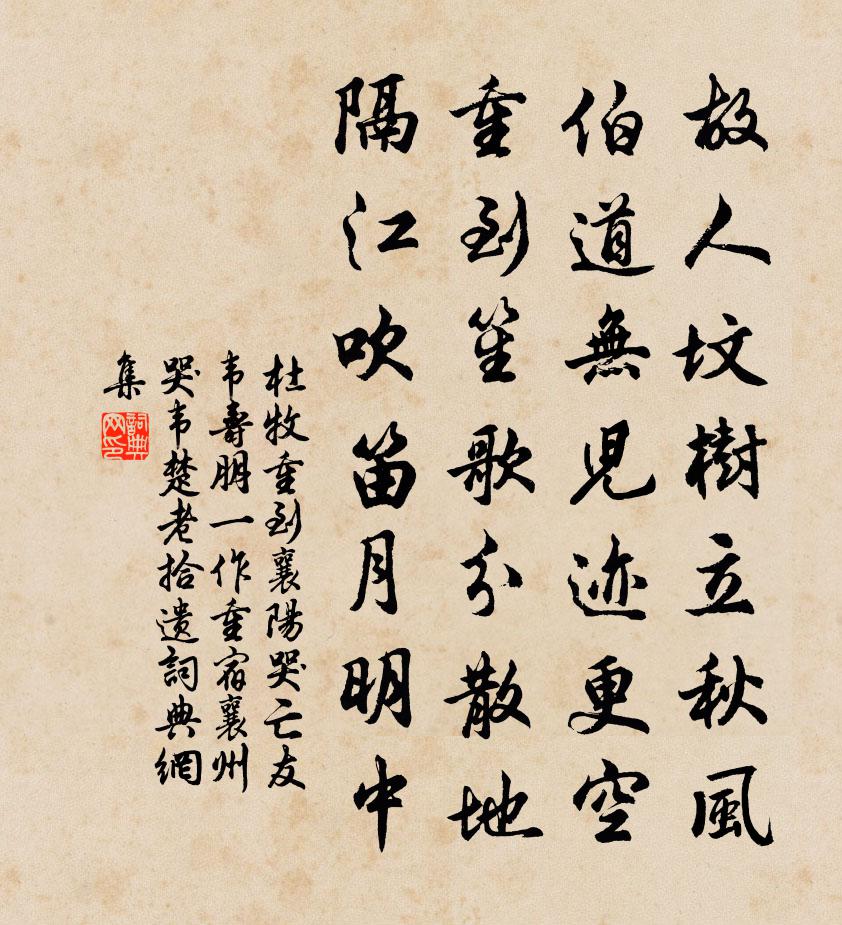 故人坟樹立秋風
伯道無兒迹更空
重到笙歌分散地
隔江吹笛月明中
杜牧重到襄陽哭亡友
韦壽朋一作重宿襄州
哭韦楚老拾遺詞典網
集
詞典
网印